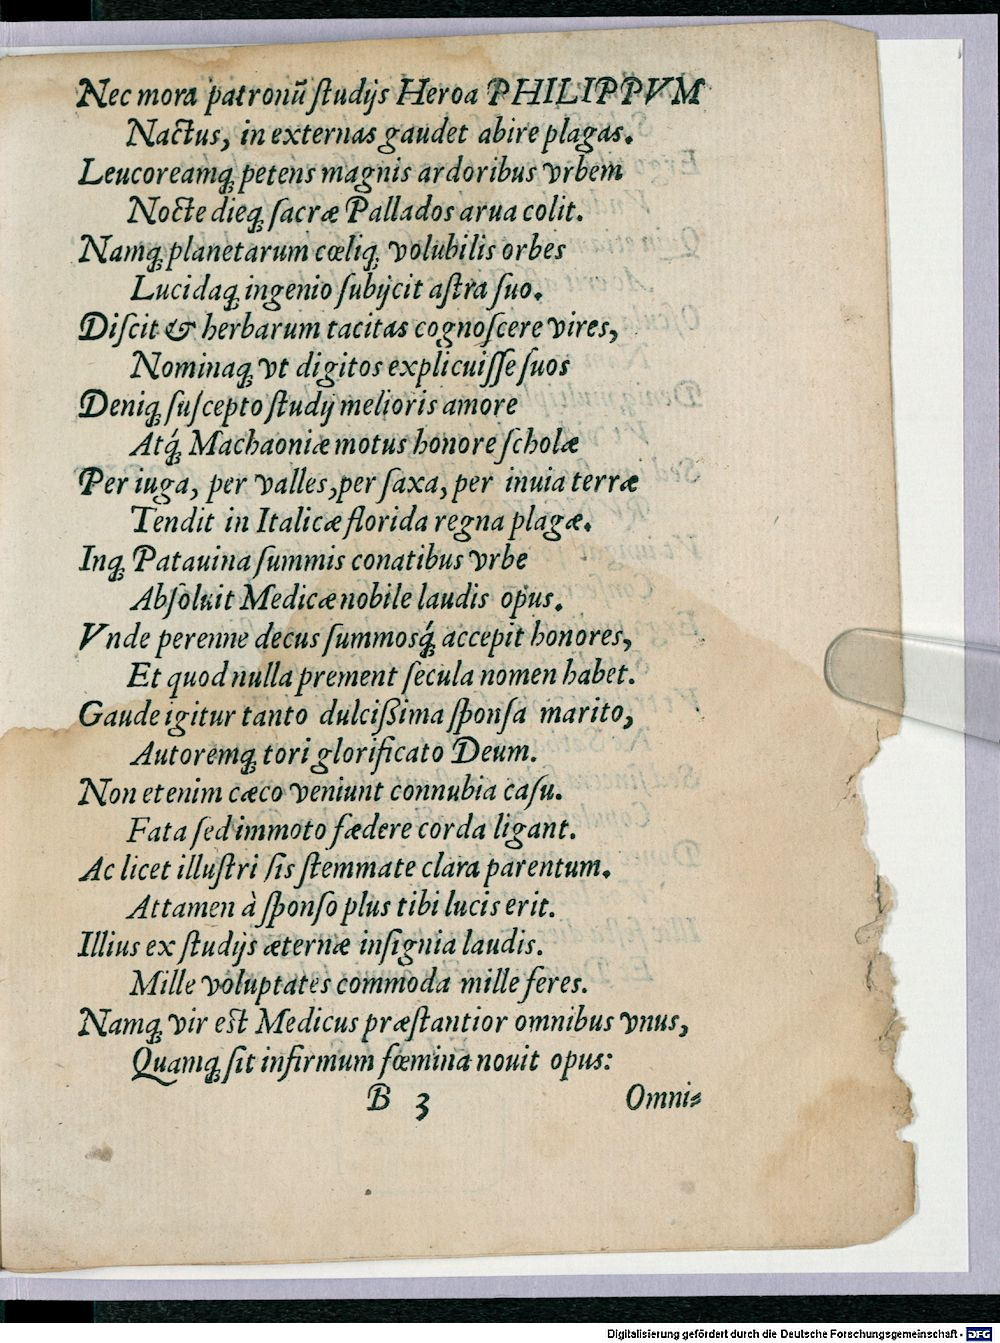 Nec mora patronū ſtudijs Heroa PHILIPPVM
Nactus, in externas gaudet abire plagas.
Leucoreamq́; petens magnis ardoribus vrbem
Nocte dieq́; ſacræ Pallados arua colit.
Namq́; planetarum cœliq́; volubilis orbes
Lucidaq́; ingenio ſubijcit aſtra ſuo.
Diſcit & herbarum tacitas cognoſcere vires,
Nominaq́; vt digitos explicuiſſe ſuos
Deniq́; ſuſcepto ſtudij melioris amore
Atq́; Machaoniæ motus honore ſcholæ
Per iuga, per valles, per ſaxa, per inuia terræ
Tendit in Italicæ florida regna plagæ.
Inq́; Patauina ſummis conatibus vrbe
Abſoluit Medicæ nobile laudis opus.
Vnde perenne decus ſummosq́; accepit honores,
Et quod nulla prement ſecula nomen habet.
Gaude igitur tanto dulciſſima ſponſa marito,
Autoremq́; tori glorificato Deum.
Non etenim cæco veniunt connubia caſu.
Fata ſed immoto fædere corda ligant.
Ac licet illuſtri ſis ſtemmate clara parentum.
Attamen à ſponſo plus tibi lucis erit.
Illius ex ſtudijs æternæ inſignia laudis.
Mille voluptates commoda mille feres.
Namq́; vir eſt Medicus præſtantior omnibus vnus,
Quamq́; ſit infirmum fœmina nouit opus:
B 3 Omni⸗
Digitalisierung gefördert durch die Deutsche Forschungsgemeinschaft - DFG